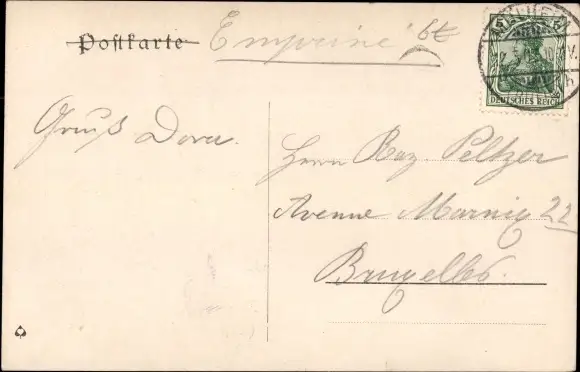 Postkarte
Imprimé
5
DEUTSCHES REICH
Gruß Dora.
Herrn Ray Peltzer
Avenue Marnix 22
Bruxelles.